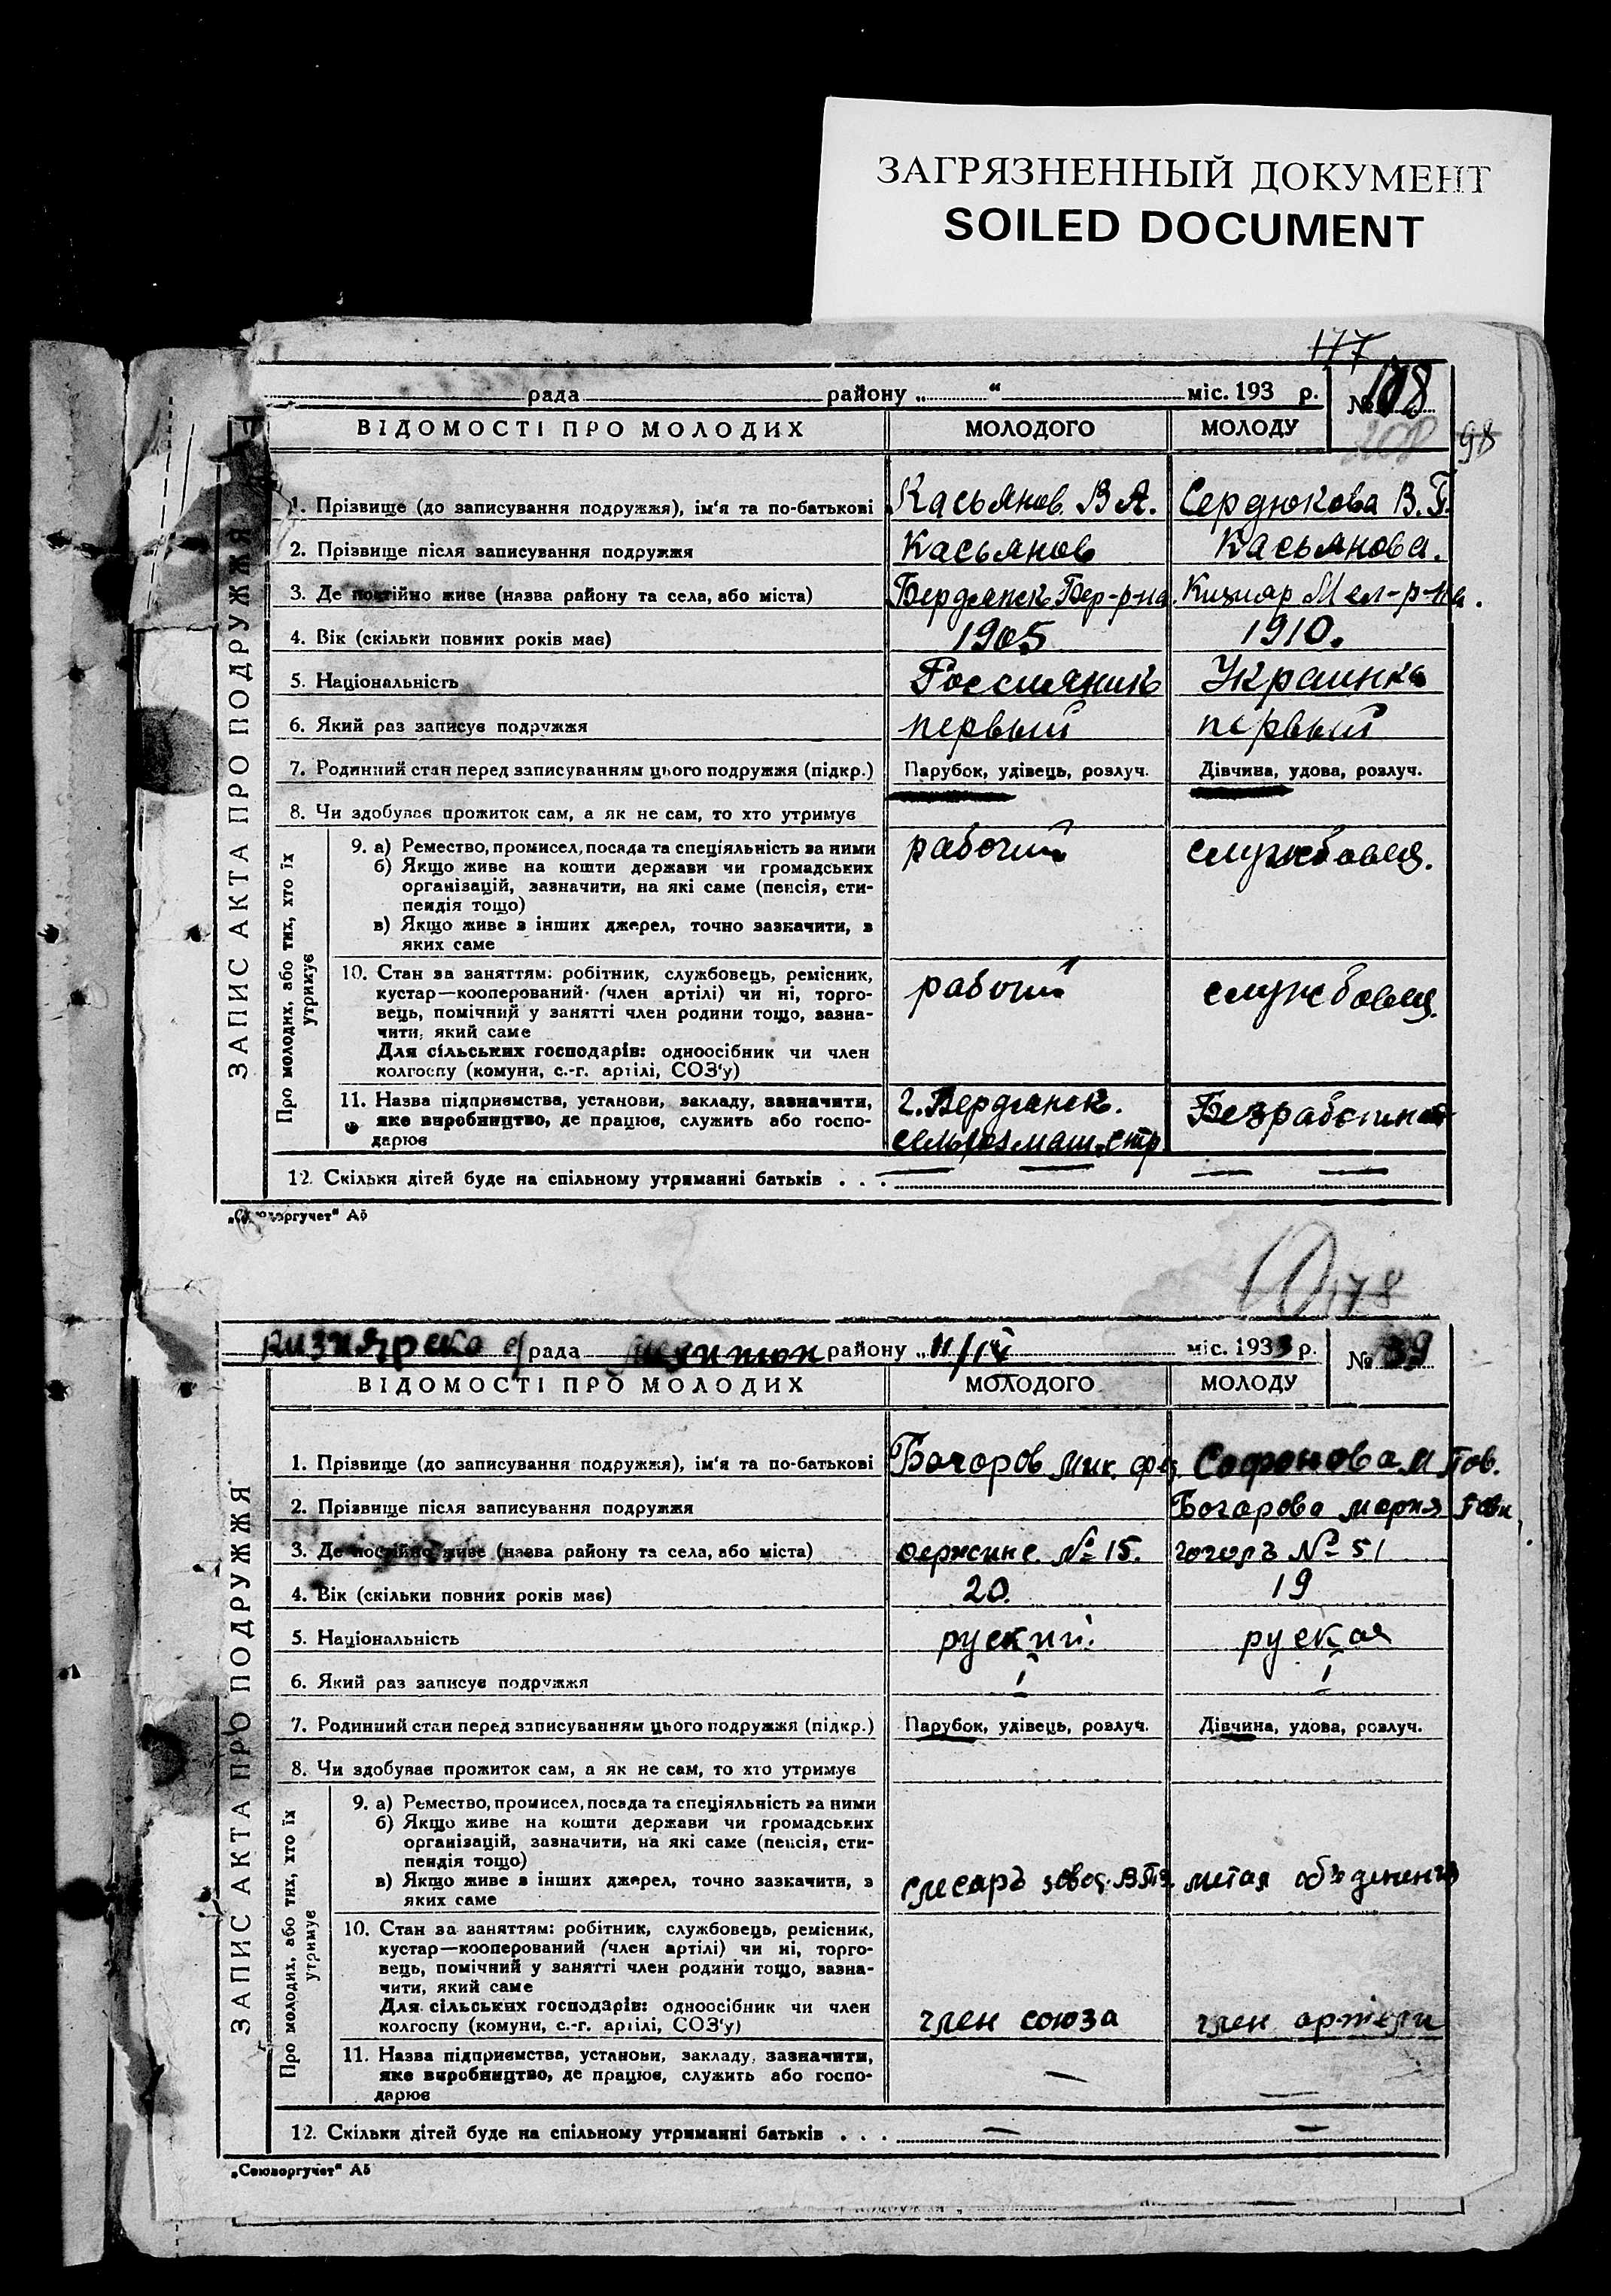 ЗАГРЯЗНЕННЫЙ ДОКУМЕНТ
SOILED DOCUMENT
177
рада району „ “ міс. 193 р. № 178
98
ВІДОМОСТІ ПРО МОЛОДИХ МОЛОДОГО МОЛОДУ
ЗАПИС АКТА ПРО ПОДРУЖЖЯ
1. Прізвище (до записування подружжя), ім'я та по-батькові Касьянов. В А. Сердюкова В. Г.
2. Прізвище після записування подружжя Касьянов Касьянова.
3. Де постійно живе (назва району та села, або міста) Бердянск Бер-р-на. Кизиар Мел-р-на.
4. Вік (скільки повних років має) 1905 1910.
5. Національність Россияник Украинка
6. Який раз записує подружжя первый первый
7. Родинний стан перед записуванням цього подружжя (підкр.) Парубок, удівець, розлуч. Дівчина, удова, розлуч.
8. Чи здобуває прожиток сам, а як не сам, то хто утримує
Про молодих, або тих, хто їх утримує
9. а) Ремество, промисел, посада та спеціяльність за ними рабочий службовец.
б) Якщо живе на кошти держави чи громадських
організацій, зазначити, на які саме (пенсія, сти-
пендія тощо)
в) Якщо живе з інших джерел, точно зазначити, з
яких саме
10. Стан за заняттям: робітник, службовець, ремісник, рабочий службовец.
кустар—кооперований (член артілі) чи ні, торго-
вець, помічний у занятті член родини тощо, зазна-
чити, який саме
Для сільських господарів: одноосібник чи член
колгоспу (комуни, с.-г. артілі, СОЗ'у)
11. Назва підприємства, установи, закладу, зазначити, г. Бердянск.
яке виробництво, де працює, служить або госпо-
дарює
12. Скільки дітей буде на спільному утриманні батьків . . .
„Союзоргучет“ А5
178
рада району „11/IV міс. 1933 р. № 39
ВІДОМОСТІ ПРО МОЛОДИХ МОЛОДОГО МОЛОДУ
ЗАПИС АКТА ПРО ПОДРУЖЖЯ
1. Прізвище (до записування подружжя), ім'я та по-батькові Богоров Мик. Софонова М Пов.
2. Прізвище після записування подружжя Богорова Мария
3. Де постійно живе (назва району та села, або міста) № 15. № 51
4. Вік (скільки повних років має) 20. 19
5. Національність руский. руская
6. Який раз записує подружжя 1 1
7. Родинний стан перед записуванням цього подружжя (підкр.) Парубок, удівець, розлуч. Дівчина, удова, розлуч.
8. Чи здобуває прожиток сам, а як не сам, то хто утримує
Про молодих, або тих, хто їх утримує
9. а) Ремество, промисел, посада та спеціяльність за ними
б) Якщо живе на кошти держави чи громадських
організацій, зазначити, на які саме (пенсія, сти-
пендія тощо)
в) Якщо живе з інших джерел, точно зазначити, з
яких саме слесаръ
10. Стан за заняттям: робітник, службовець, ремісник,
кустар—кооперований (член артілі) чи ні, торго-
вець, помічний у занятті член родини тощо, зазна-
чити, який саме
Для сільських господарів: одноосібник чи член
колгоспу (комуни, с.-г. артілі, СОЗ'у) член союза член артели
11. Назва підприємства, установи, закладу, зазначити,
яке виробництво, де працює, служить або госпо-
дарює
12. Скільки дітей буде на спільному утриманні батьків . . .
„Союзоргучет“ А5